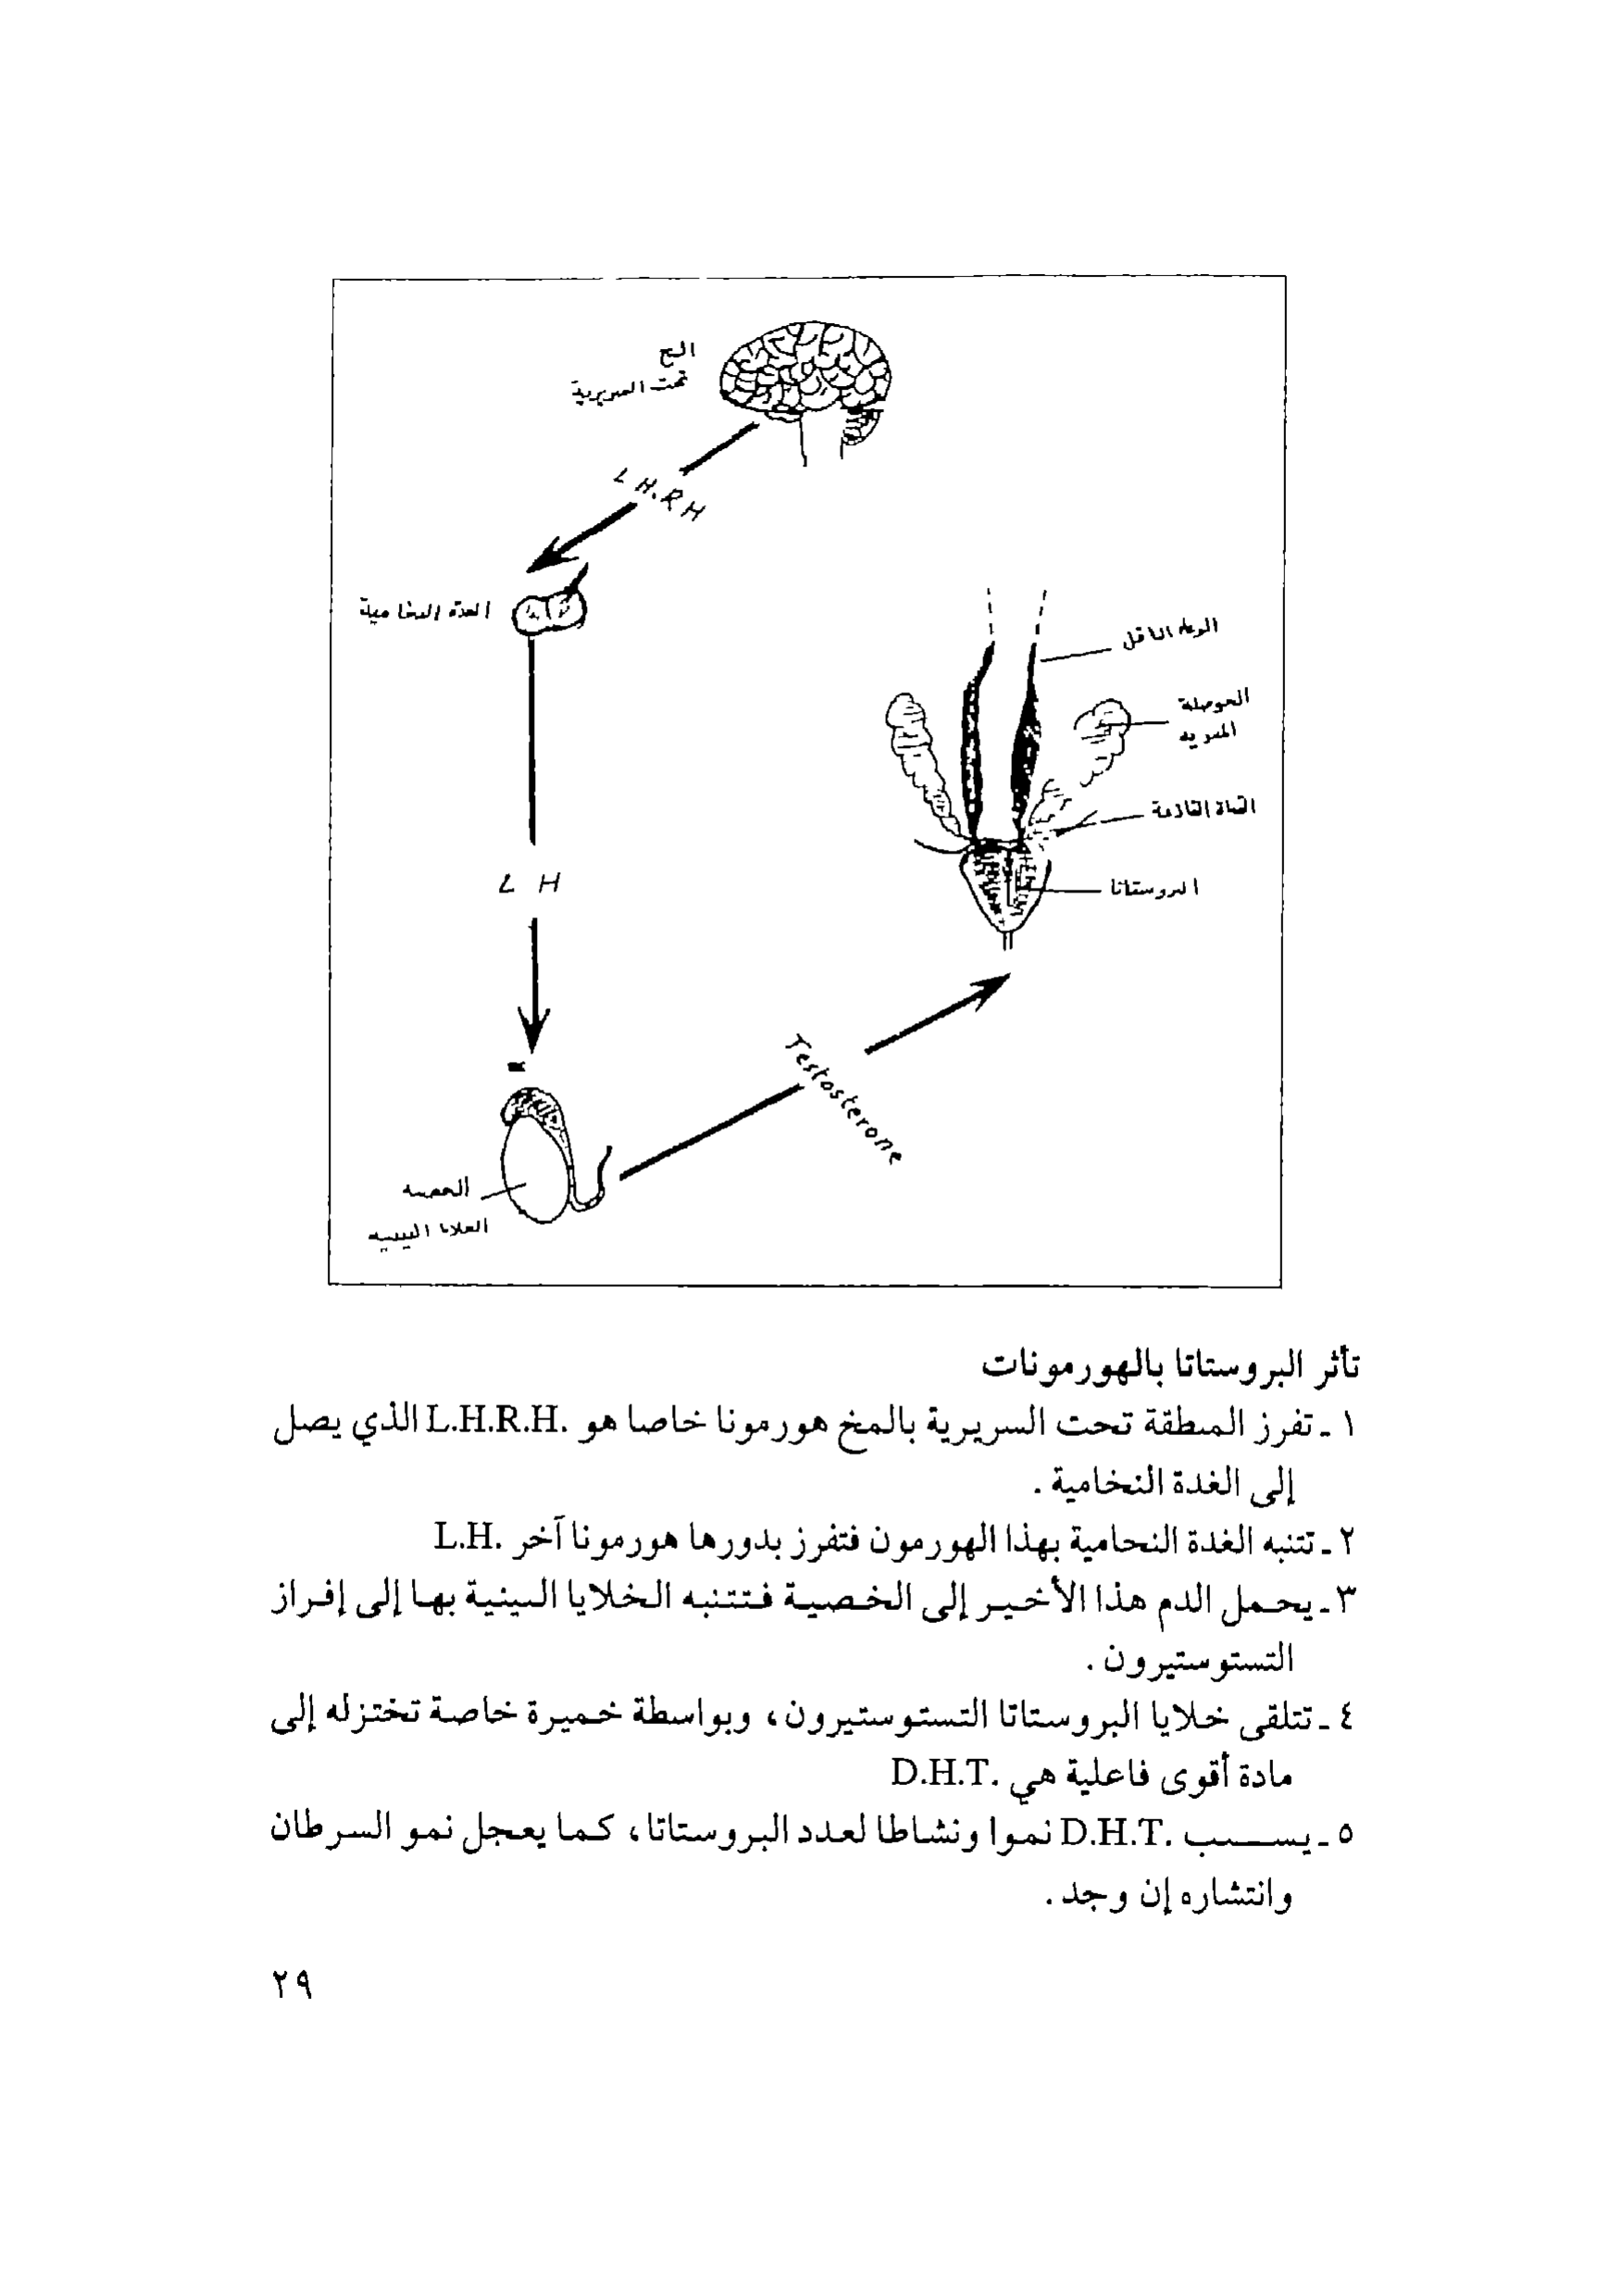 المخ
تحت السريرية
L H.R H
الغدة النخامية
الوعاء الناقل
الحوصلة
المنوية
القناة القاذفة
البروستاتا
L H
Testosterone
الخصية
الخلايا البينية
تأثر البروستاتا بالهورمونات
١ ـ تفرز المنطقة تحت السريرية بالمخ هورمونا خاصا هو .L.H.R.H الذي يصل
إلى الغدة النخامية .
٢ ـ تتنبه الغدة النخامية بهذا الهورمون فتفرز بدورها هورمونا آخر .L.H
٣ ـ يحمل الدم هذا الأخير إلى الخصية فتتنبه الخلايا البينية بها إلى إفراز
التستوستيرون .
٤ ـ تتلقى خلايا البروستاتا التستوستيرون، وبواسطة خميرة خاصة تختزله إلى
مادة أقوى فاعلية هي .D.H.T
٥ ـ يسبب .D.H.T نموا ونشاطا لغدد البروستاتا، كما يعجل نمو السرطان
وانتشاره إن وجد .
٢٩